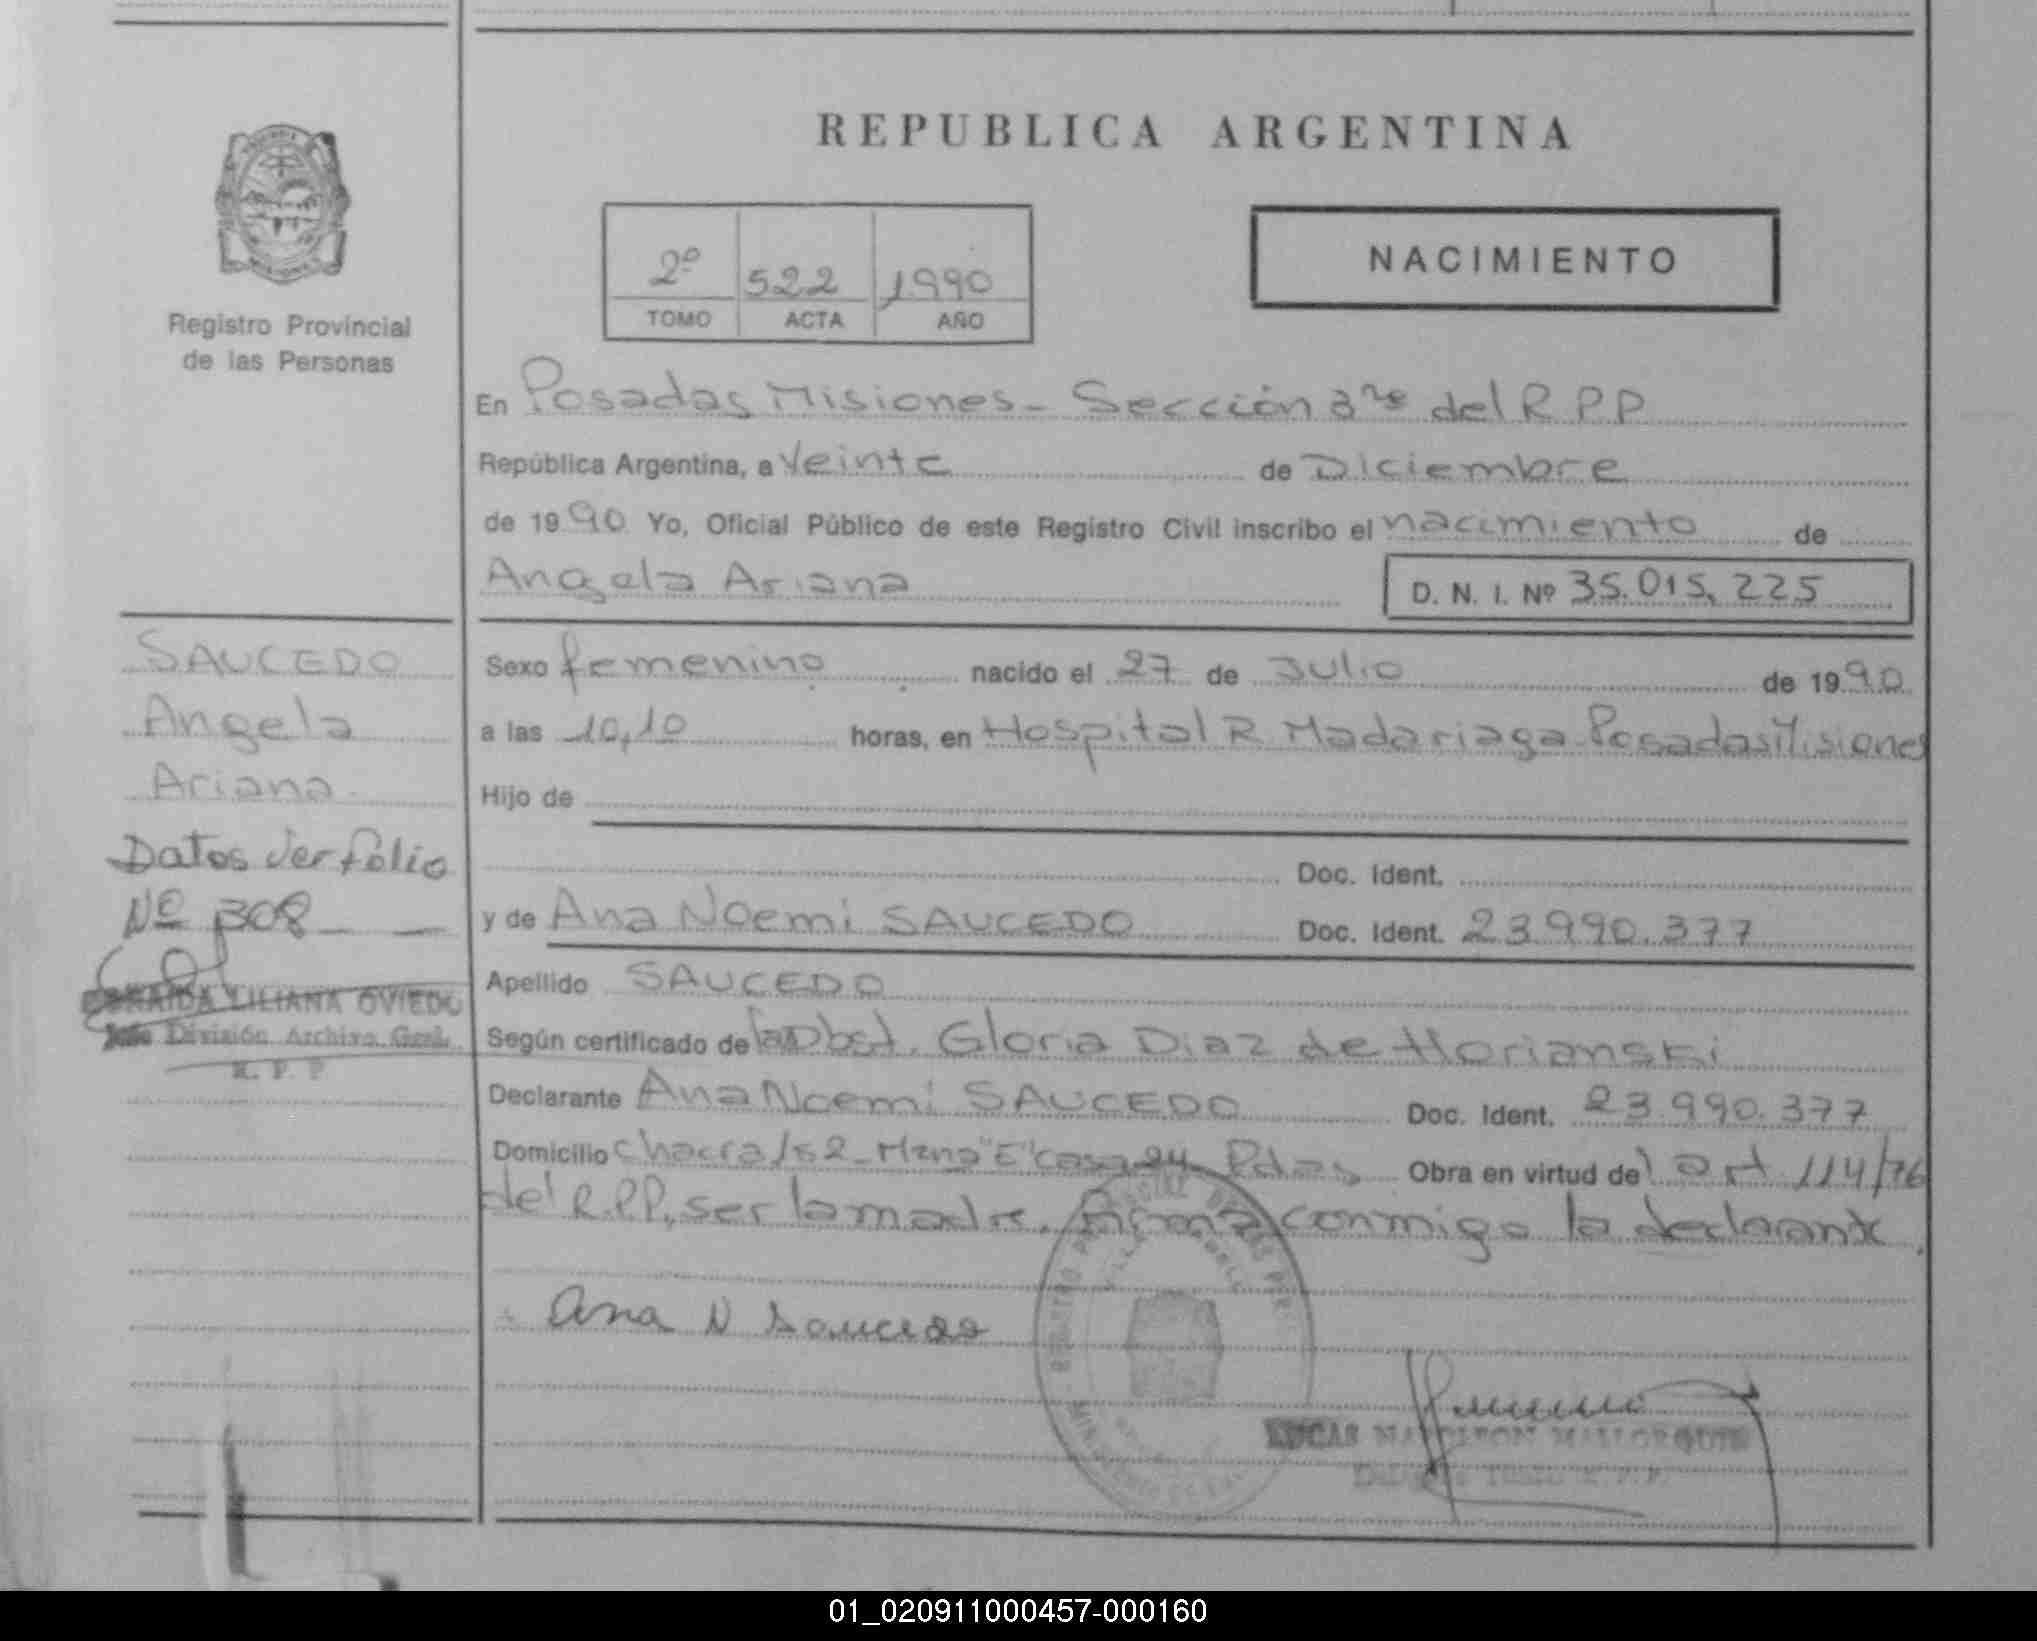 REPUBLICA ARGENTINA
NACIMIENTO
2º 522 1990
TOMO ACTA AÑO
Registro Provincial
de las Personas
En Posadas Misiones - Sección 3ra del R P P
República Argentina, a Veinte de Diciembre
de 1990 Yo, Oficial Público de este Registro Civil inscribo el nacimiento de
Angela Ariana D. N. I. Nº 35.015.225
SAUCEDO
Angela
Ariana
Datos ver folio
Nº 308
LILIANA OVIEDO
Jefe División Archivo Gral.
R. P. P
Sexo femenino nacido el 27 de Julio de 1990
a las 10,10 horas, en Hospital R Madariaga Posadas Misiones
Hijo de
Doc. Ident.
y de Ana Noemi SAUCEDO Doc. Ident. 23.990.377
Apellido SAUCEDO
Según certificado de la Obst. Gloria Diaz de Horianski
Declarante Ana Noemi SAUCEDO Doc. Ident. 23.990.377
Domicilio Chacra 152 - Mzna "E" casa 24 Pdas Obra en virtud del art 114/76
del R.P.P, ser la madre. Firma conmigo la declarante.
Ana N Saucedo
LUCAS NAPOLEON MALLORQUIN
01_020911000457-000160